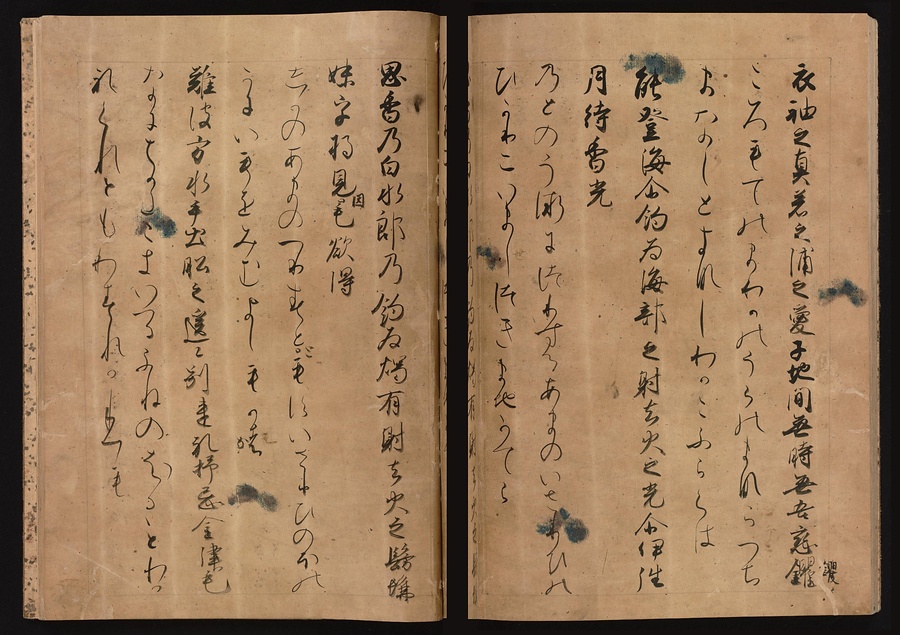 衣袖之真若之浦之愛子地間無時無吾戀钁
ころもてのまわかのうらのまなこつち
まなしときなしわかこふらくは
能登海尓釣為海部之射去火之光尓伊往
月待香光
乃とのうみにつりするあまのいさりひの
ひかりにいましつきまちかてら
思香乃白水郎乃釣為燭有射去火之髣髴
妹乎将見因毛欲得
しかのあまのつりすともせるいさりひのほの
かにいもをみむよしもかも
難波方水手出船之遥々別来礼杼忘金津毛
なにはかたこきいつるふねのはる〱とわか
れくれともわすれかねつも